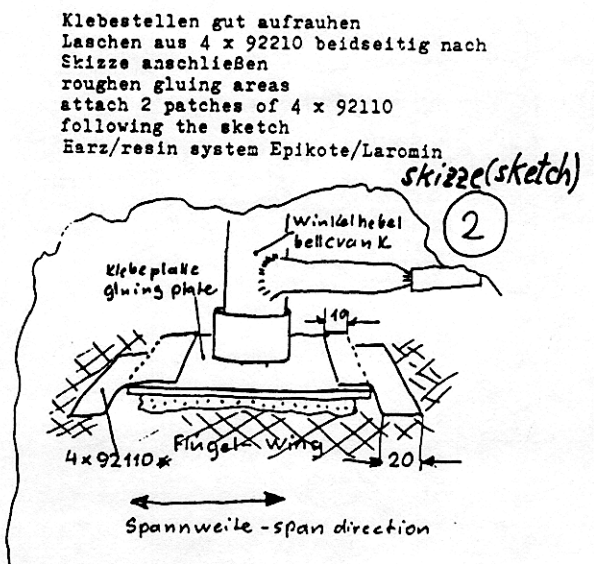 Klebestellen gut aufrauhen
Laschen aus 4 x 92210 beidseitig nach
Skizze anschließen
roughen gluing areas
attach 2 patches of 4 x 92110
following the sketch
Harz/resin system Epikote/Laromin
skizze(sketch)
2
Winkelhebel
bellcrank
Klebeplatte
gluing plate
10
Flügel-Wing
4x92110
20
Spannweite-span direction